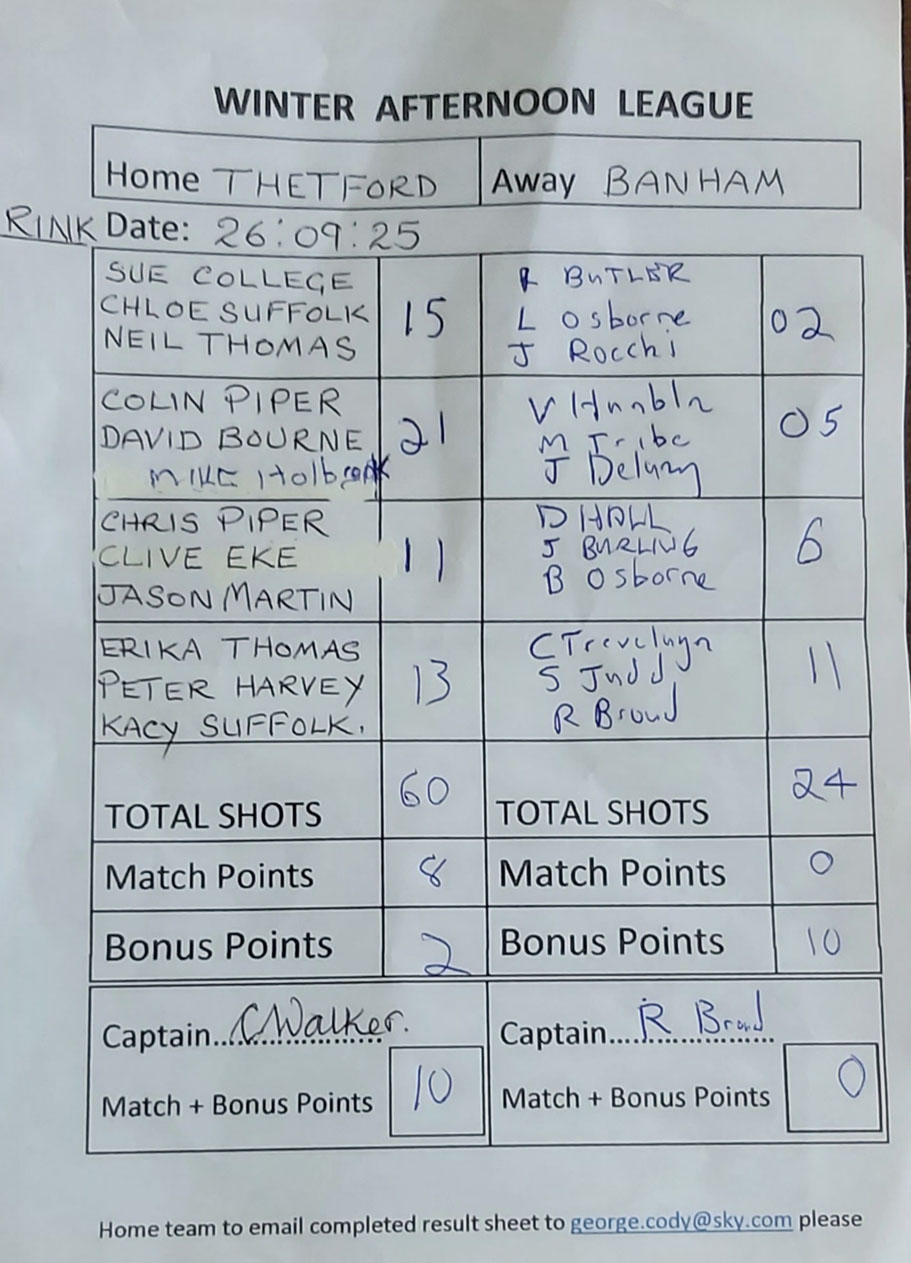 WINTER AFTERNOON LEAGUE
Home THETFORD
Away BANHAM
RINK Date: 26:09:25
SUE COLLEGE
CHLOE SUFFOLK
NEIL THOMAS
15
R BUTLER
L Osborne
J Rocchi
02
COLIN PIPER
DAVID BOURNE
MIKE Holbrook
21
V
M Tribe
J
05
CHRIS PIPER
CLIVE EKE
JASON MARTIN
11
D HALL
J BURLING
B Osborne
6
ERIKA THOMAS
PETER HARVEY
KACY SUFFOLK.
13
C
S Judd
R Broud
11
TOTAL SHOTS
60
TOTAL SHOTS
24
Match Points
8
Match Points
0
Bonus Points
2
Bonus Points
10
Captain...CWalker.
Captain....R Broud
Match + Bonus Points
10
Match + Bonus Points
0
Home team to email completed result sheet to george.cody@sky.com please